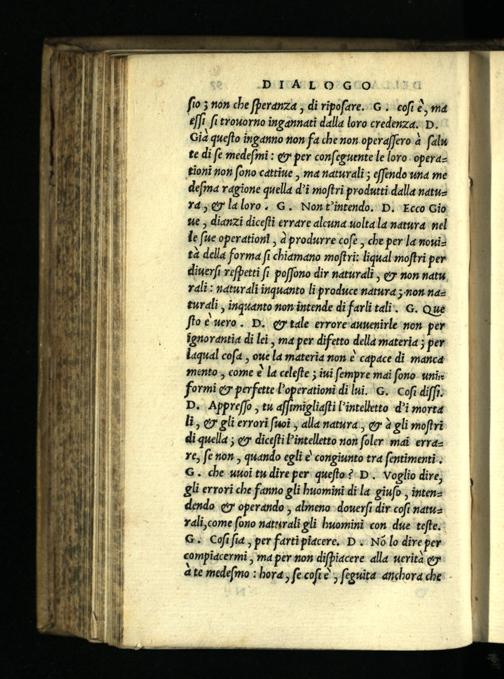 DIALOGO
sio; non che speranza, di riposare. G. cosi è, ma
essi si trouorno ingannati dalla loro credenza. D.
Già questo inganno non fa che non operassero à salu
te di se medesmi: & per conseguente le loro opera=
tioni non sono cattiue, ma naturali; essendo una me
desma ragione quella d'i mostri produtti dalla natu=
ra, & la loro. G. Non t'intendo. D. Ecco Gio
ue, dianzi dicesti errare alcuna uolta la natura nel
le sue operationi, à produrre cose, che per la noui=
tà della forma si chiamano mostri: liqual mostri per
diuersi respetti si possono dir naturali, & non natu
rali: naturali inquanto li produce natura; non na=
turali, inquanto non intende di farli tali. G. Que
sto è uero. D. & tale errore auuenirle non per
ignorantia di lei, ma per difetto della materia; per
laqual cosa, oue la materia non è capace di manca
mento, come è la celeste; iui sempre mai sono uni=
formi & perfette l'operationi di lui. G. Cosi dissi.
D. Appresso, tu assimigliasti l'intelletto d'i morta
li, & gli errori suoi, alla natura, & à gli mostri
di quella; & dicesti l'intelletto non soler mai erra=
re, se non, quando egli è congiunto tra sentimenti.
G. che uuoi tu dire per questo? D. Voglio dire,
gli errori che fanno gli huomini di la giuso, inten=
dendo & operando, almeno douersi dir cosi natu=
rali, come sono naturali gli huomini con due teste.
G. Cosi sia, per farti piacere. D. Nō lo dire per
compiacermi, ma per non dispiacere alla uerità &
à te medesmo: hora, se cosi è, seguita anchora che